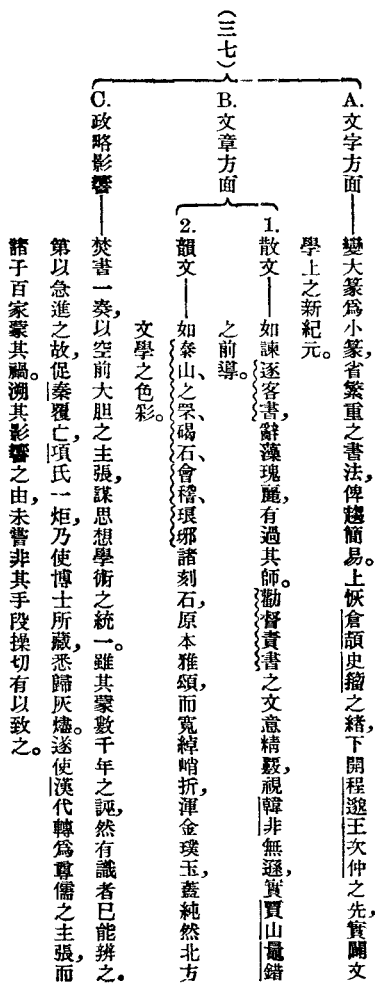 (三七)
A.文字方面——變大篆爲小篆,省繁重之書法,俾趨簡易。上恢倉頡史籀之緖,下開程邈王次仲之先,實闢文
學上之新紀元。
B.文章方面
1.散文——如諫逐客書,辭藻瑰麗,有過其師。勸督責書之文意精覈,視韓非無遜,實賈山鼂錯
之前導。
2.韻文——如泰山、之罘、碣石、會稽、琅邪諸刻石,原本雅頌,而寬綽峭折,渾金璞玉,蓋純然北方
文學之色彩。
C.政略影響——焚書一奏,以空前大胆之主張,謀思想學術之統一。雖其蒙數千年之誣,然有識者已能辨之。
第以急進之故,促秦覆亡,項氏一炬,乃使博士所藏,悉歸灰燼。遂使漢代轉爲尊儒之主張,而
諸子百家蒙其禍。溯其影響之由,未嘗非其手段操切有以致之。